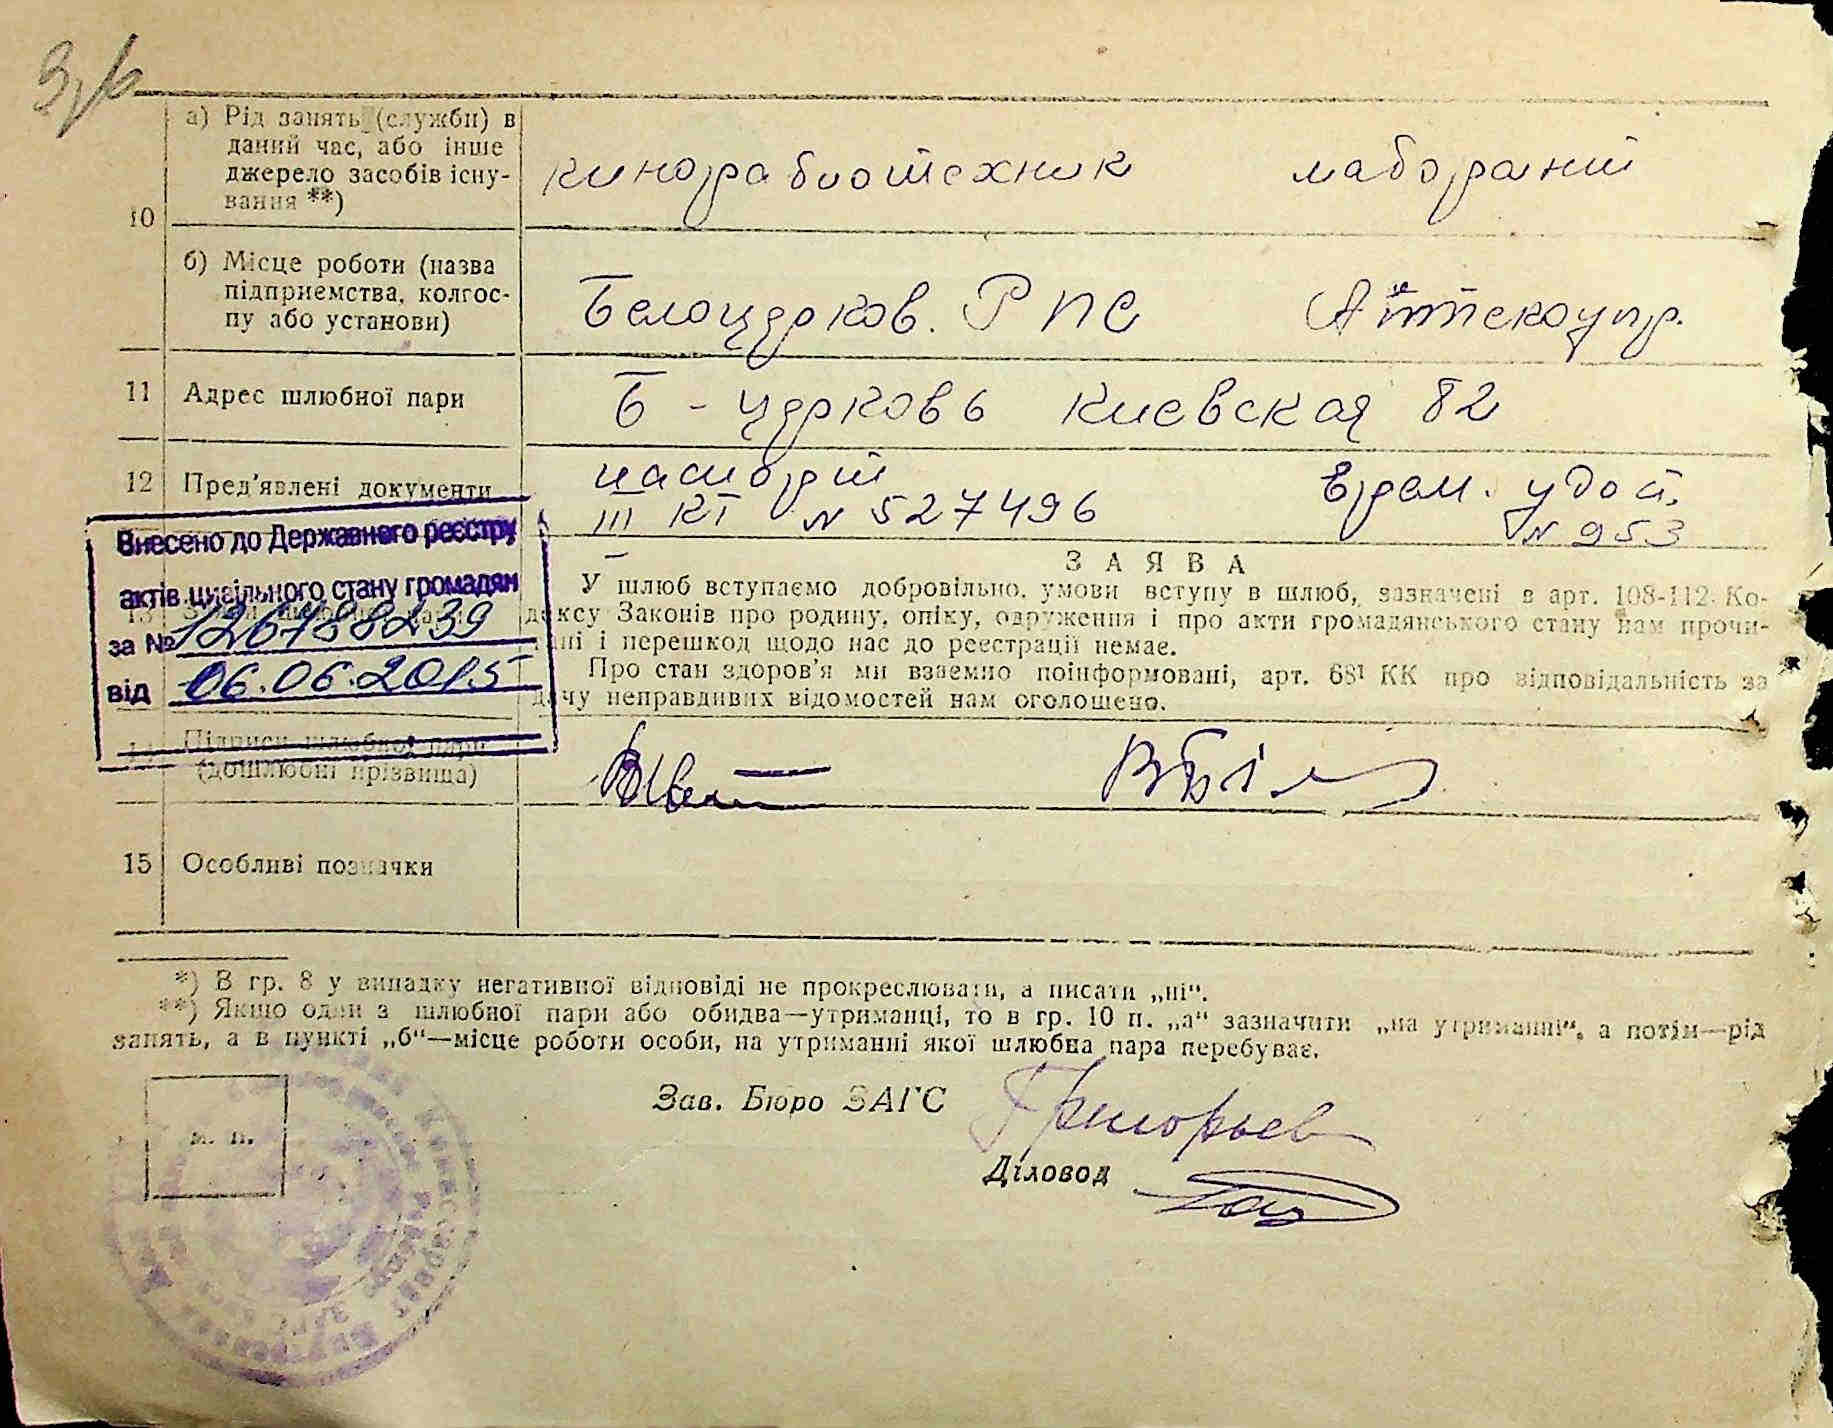 а) Рід занять (служби) в
даний час, або інше
джерело засобів існу-
вання **)
10
кинорабиотехник лаборант
б) Місце роботи (назва
підприємства, колгос-
пу або установи)
Белоцерков. РПС Аптекоупр.
11 Адрес шлюбної пари
Б-церковь Киевская 82
12 Пред'явлені документи
паспорт Врем. удост.
III КТ N 527496 N 953
Внесено до Державного реєстру
актів цивільного стану громадян
за № 126788239
від 06.06.2015
ЗАЯВА
У шлюб вступаємо добровільно, умови вступу в шлюб, зазначені в арт. 108-112 Ко-
дексу Законів про родину, опіку, одруження і про акти громадянського стану нам прочи-
тані і перешкод щодо нас до реєстрації немає.
Про стан здоров'я ми взаємно поінформовані, арт. 68¹ КК про відповідальність за
дачу неправдивих відомостей нам оголошено.
14 Підписи шлюбної пари
(дошлюбні прізвища)
15 Особливі позначки
*) В гр. 8 у випадку негативної відповіді не прокреслювати, а писати „ні“.
**) Якщо один з шлюбної пари або обидва—утриманці, то в гр. 10 п. „а“ зазначити „на утриманні“, а потім—рід
занять, а в пункті „б“—місце роботи особи, на утриманні якої шлюбна пара перебуває.
Зав. Бюро ЗАГС Григорьев
м. п.
Діловод